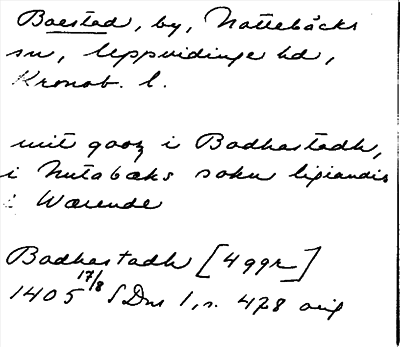 Boestad, by, Nottebäcks
sn, Uppvidinge hd,
Kronob. l.
mit gooz i Bodhastadh,
i Nutabæks sokn ligiandis
i Wærende
Bodhastadh [4 ggr]
1405 17/8 SDns 1, s. 478 orig